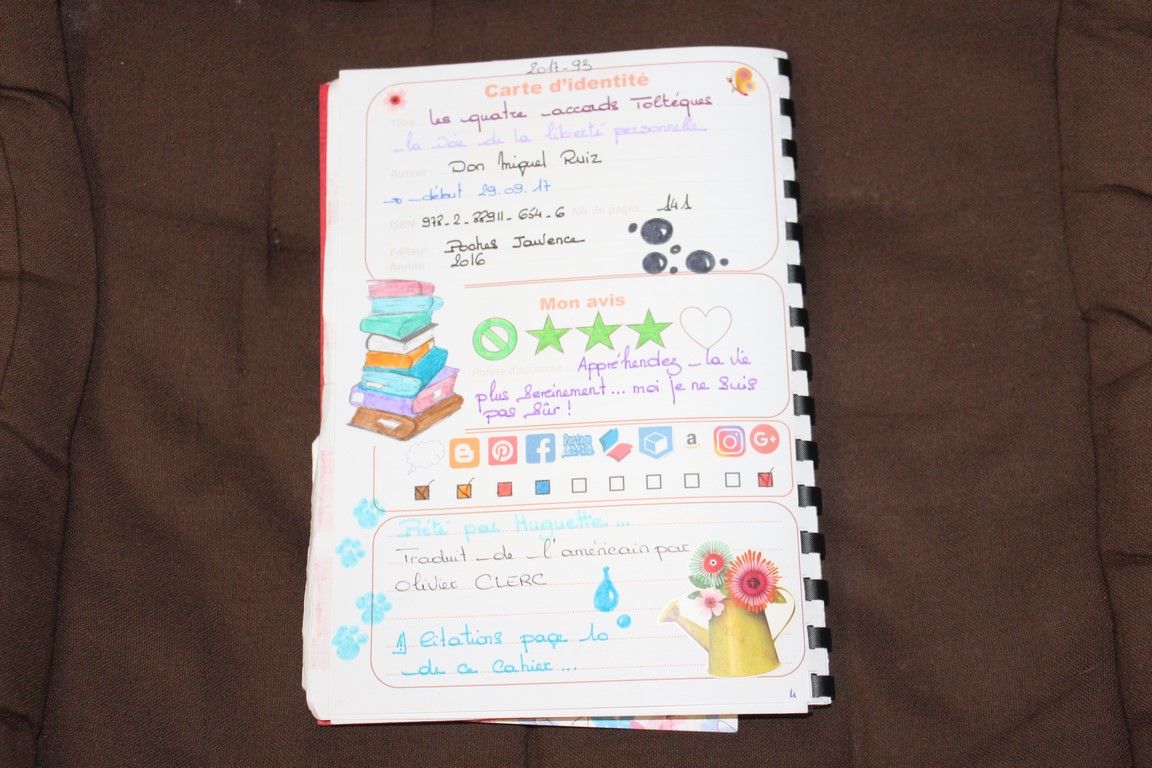 2017-93
Carte d'identité
Titre : Les quatre accords Toltéques
la voie de la liberté personnelle
Auteur : Don Miguel Ruiz
→ début 29.09.17
ISBN : 978-2-88911-654-6 Nb de pages : 141
Editeur : Poches Jouvence
Année : 2016
Mon avis
Phrase d'accroche : Appréhendez la vie
plus sereinement... moi je ne suis
pas sûr !
Partage
a
G+
Prêté par Huguette...
Traduit de l'américain par
Olivier CLERC
! Citations page 10
de ce cahier...
4